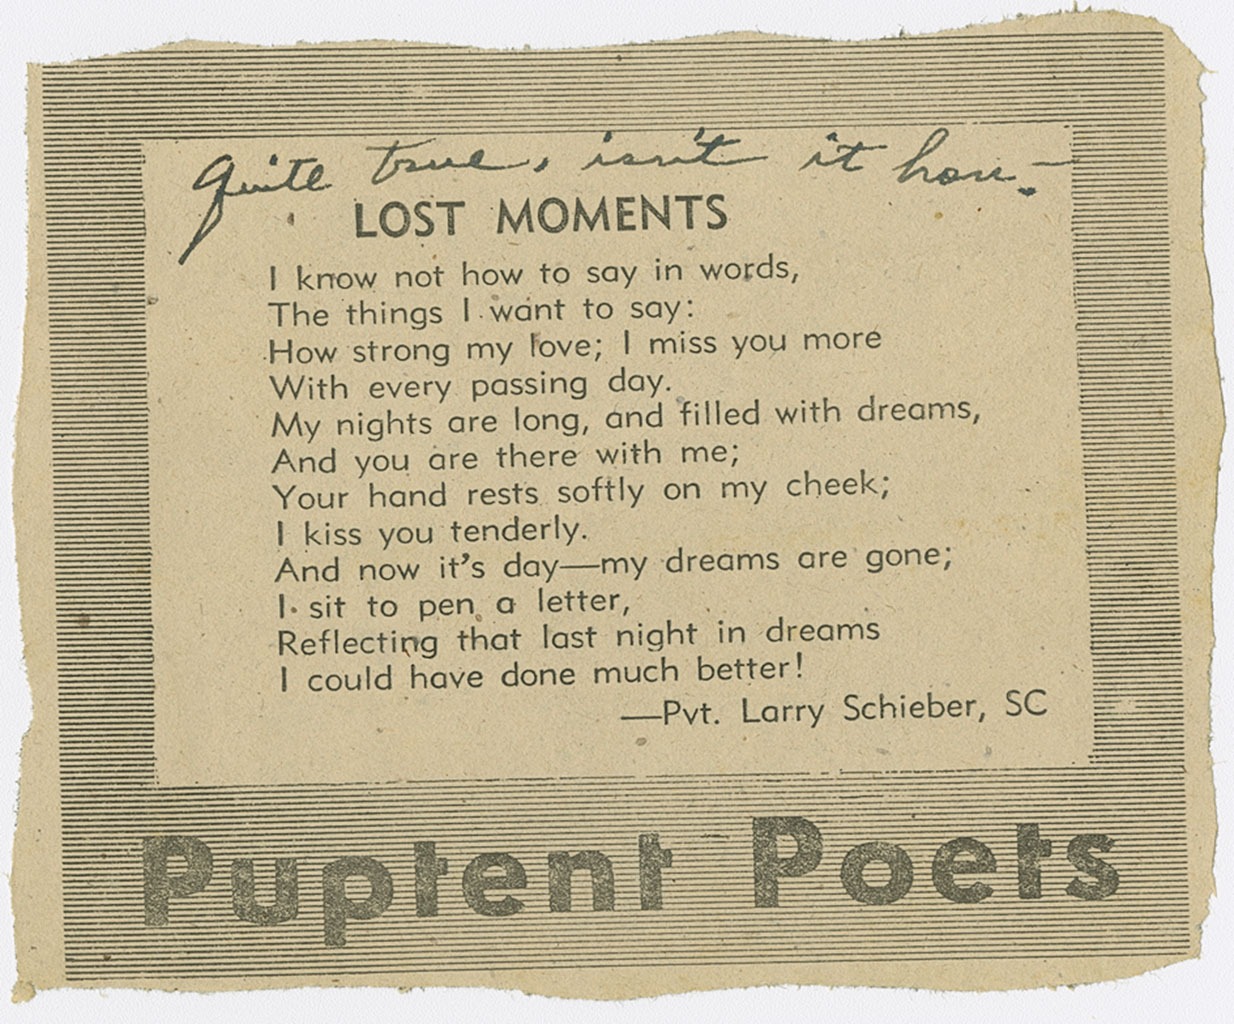 Quite true, isn't it hon.-
LOST MOMENTS
I know not how to say in words,
The things I want to say:
How strong my love; I miss you more
With every passing day.
My nights are long, and filled with dreams,
And you are there with me;
Your hand rests softly on my cheek;
I kiss you tenderly.
And now it's day—my dreams are gone;
I sit to pen a letter,
Reflecting that last night in dreams
I could have done much better!
—Pvt. Larry Schieber, SC
Puptent Poets